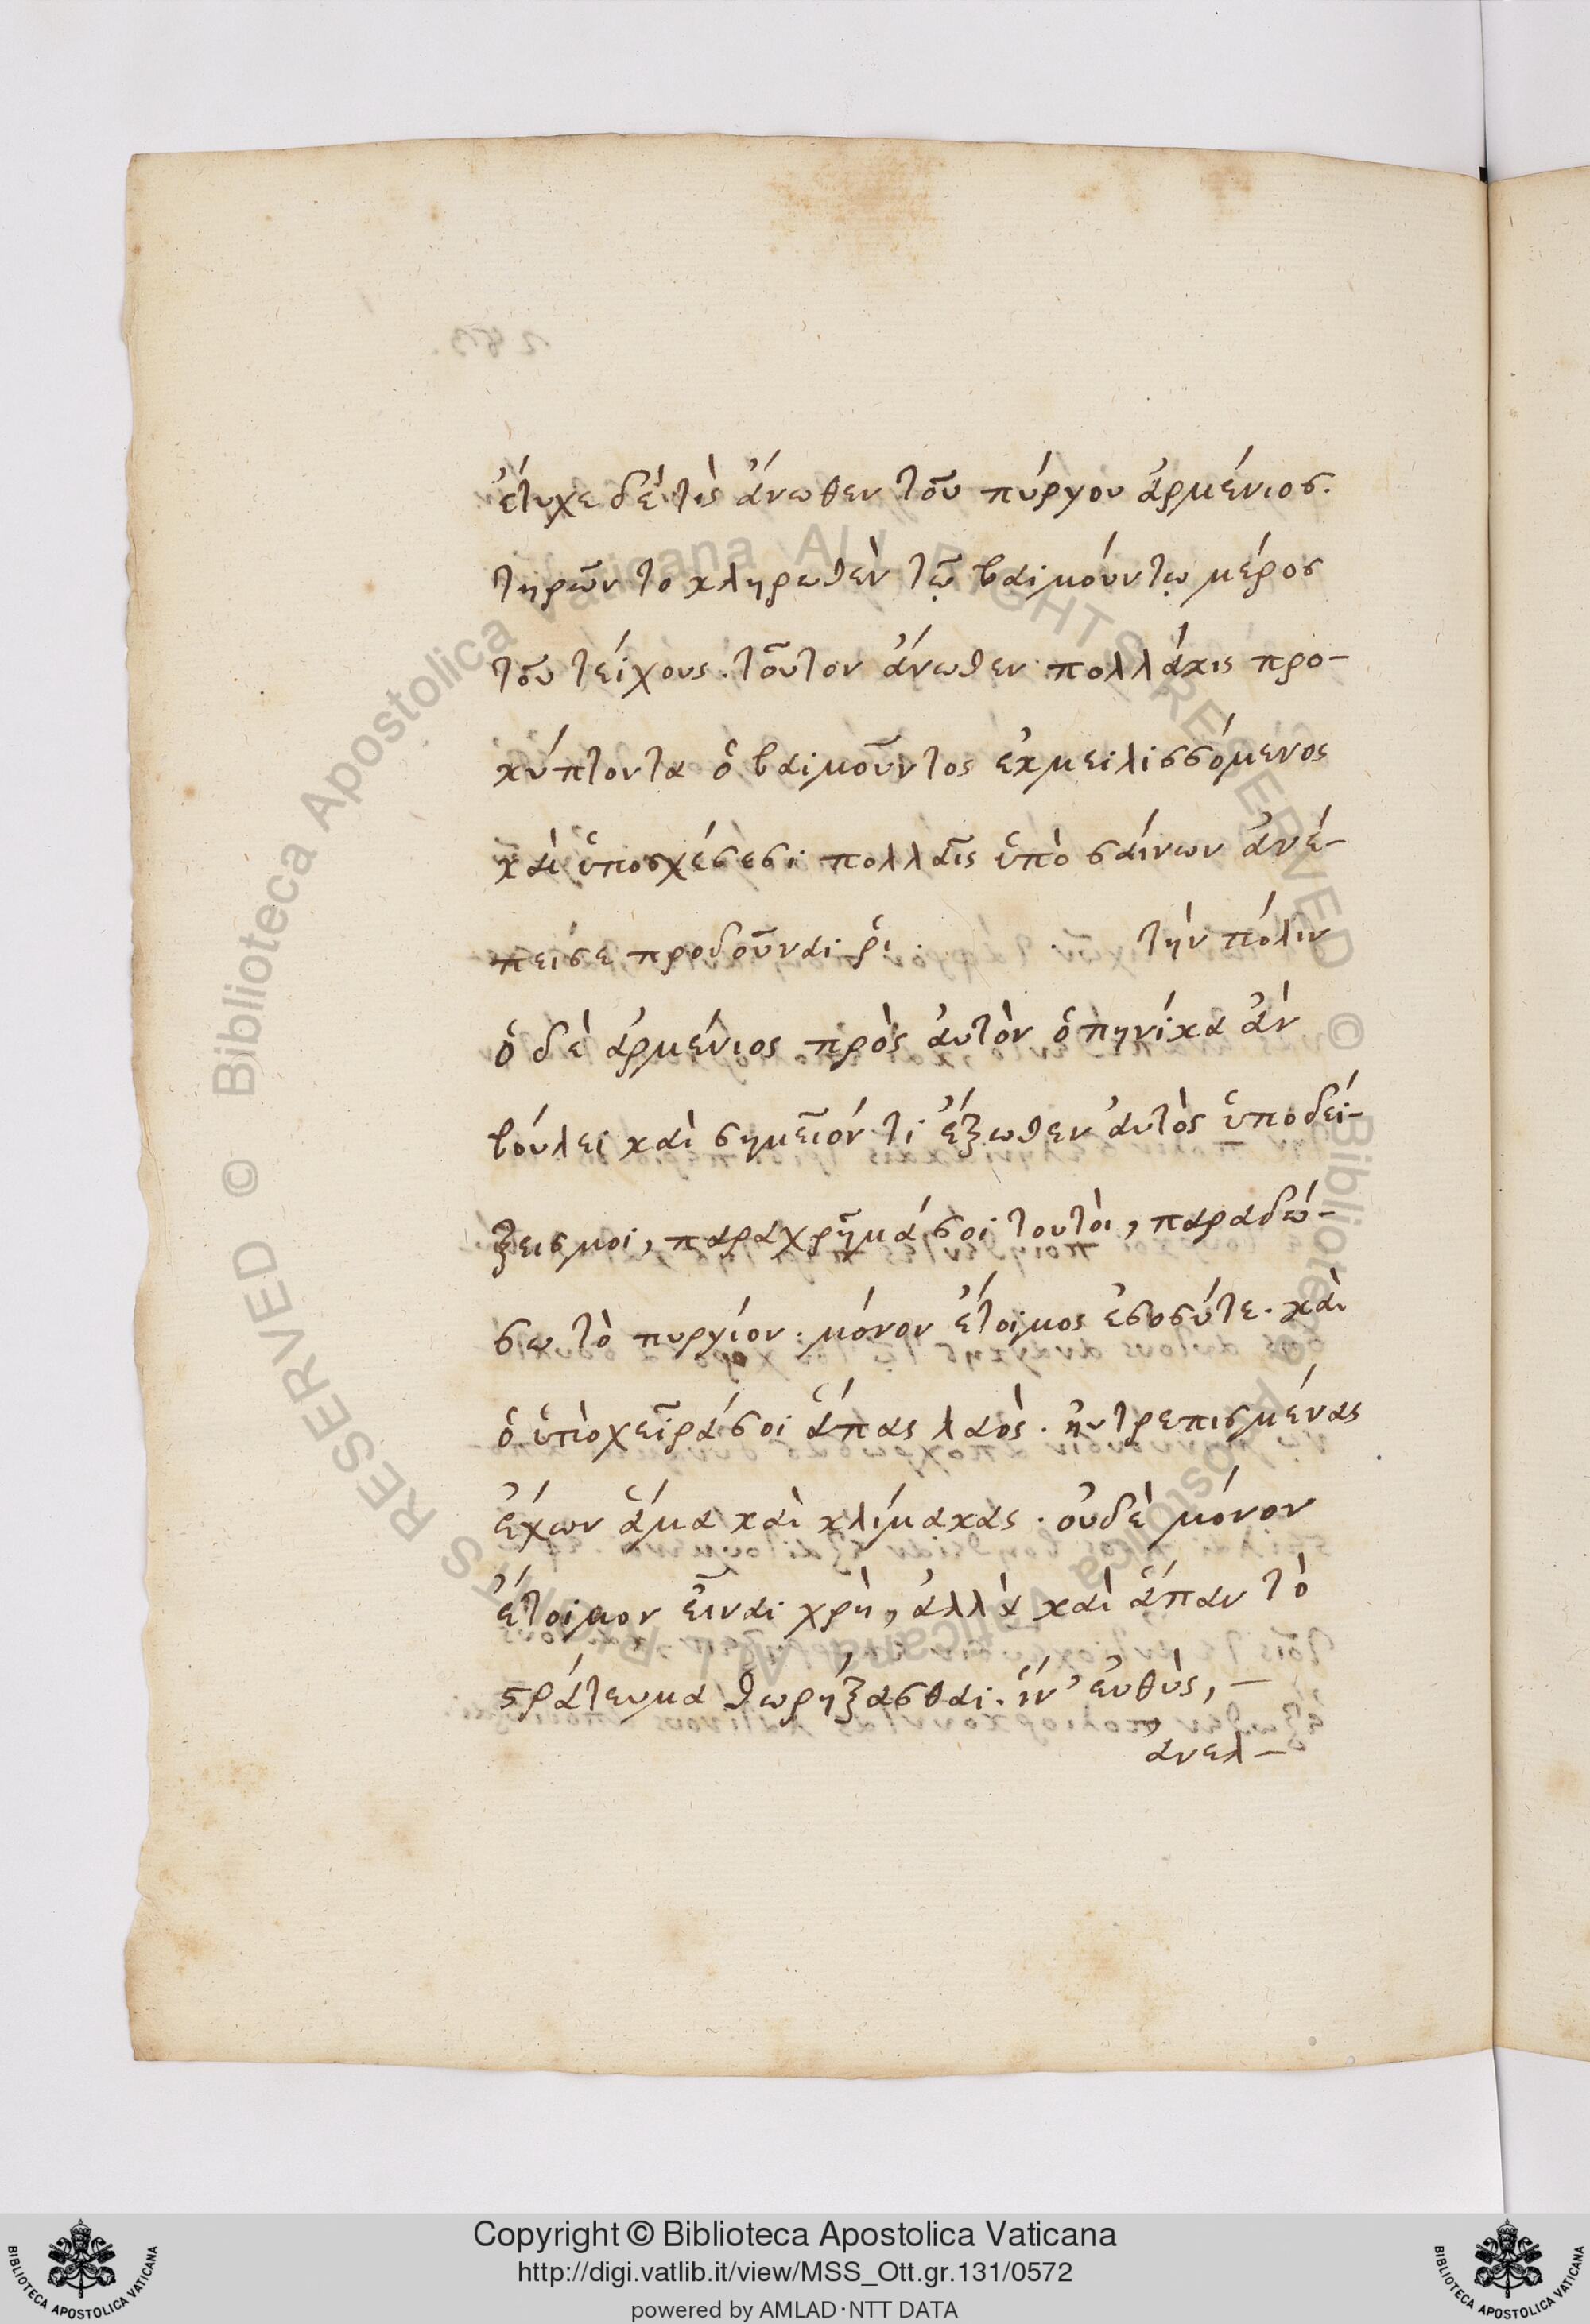 ἔτυχε δέ τὶς ἄνωθεν τοῦ πύργου ἀρμένιος.
τηρῶν το κληρωθὲν τῷ βαϊμούντῳ μέρος
τοῦ τείχους. τοῦτον ἄνωθεν πολλάκις προ-
κύπτοντα ὁ βαϊμοῦντος ἐκμειλισσόμενος
καὶ ὑποσχέσεσι πολλαῖς ὑπὸ σαίνων ἀνέ-
πεισε προδοῦναι οἱ . . τὴν πόλιν
ὁ δὲ ἀρμένιος πρὸς ἀυτὸν ὁπηνίκα ἂν
βούλει καὶ σημεῖόν τι ἔξωθεν ἀυτὸς ὑποδεί-
ξεις μοι, παραχρῆμά σοι τουτὸι, παραδώ-
σω τὸ πυργίον. μόνον ἕτοιμος ἐσοσύτε. καὶ
ὁ ὑπὸ χεῖρά σοι ἅπας λαὸς. ηὐτρεπισμένας
ἔχων ἅμα καὶ κλίμακας. οὐδὲ μόνον
ἕτοιμον εἶναι χρὴ, ἀλλὰ καὶ ἅπαν τὸ
στράτευμα θωρήξασθαι. ἵν' εὐθὺς, -
ἀνελ-
Copyright © Biblioteca Apostolica Vaticana
http://digi.vatlib.it/view/MSS_Ott.gr.131/0572
powered by AMLAD·NTT DATA